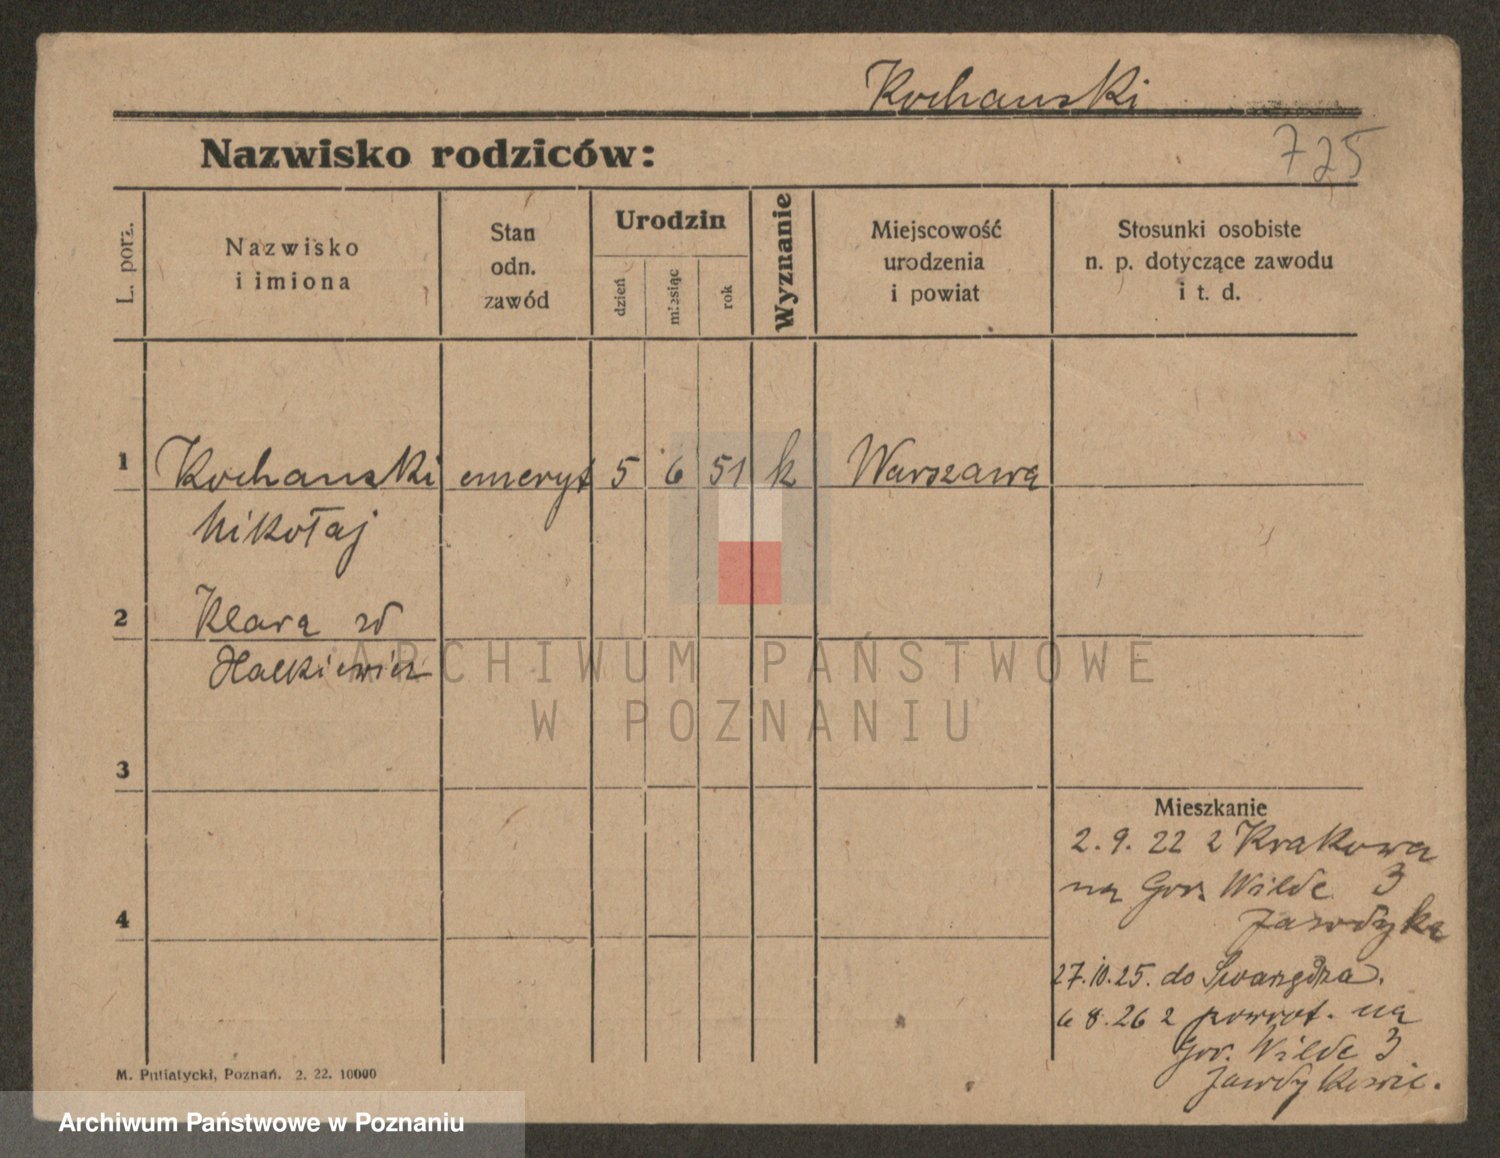 Kochanski
Nazwisko rodziców:
725
L. porz.
Nazwisko
i imiona
Stan
odn.
zawód
Urodzin
dzień
miesiąc
rok
Wyznanie
Miejscowość
urodzenia
i powiat
Stosunki osobiste
n. p. dotyczące zawodu
i t. d.
1 Kochanski emeryt 5 6 51 k Warszawa
Mikołaj
2 Klara zd
Halkiewicz
ARCHIWUM PAŃSTWOWE
W POZNANIU
3
Mieszkanie
2. 9. 22 z Krakowa
na Gor. Wilde 3
4
27.10.25. do
6 8. 26 z powrot. na
Gor. Wilde 3
M. Putiatycki, Poznań. 2. 22. 10000
Archiwum Państwowe w Poznaniu